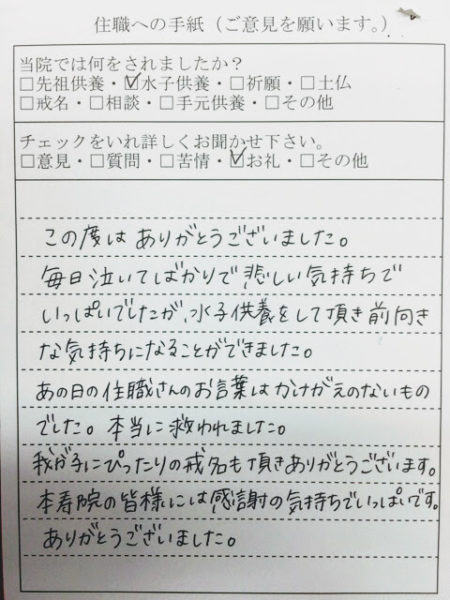 住職への手紙（ご意見を願います。）
当院では何をされましたか？
□先祖供養・☑水子供養・□祈願・□土仏
□戒名・□相談・□手元供養・□その他
チェックをいれ詳しくお聞かせ下さい。
□意見・□質問・□苦情・☑お礼・□その他
この度は ありがとうございました。
毎日泣いてばかりで悲しい気持ちで
いっぱいでしたが、水子供養をして頂き前向き
な気持ちになることができました。
あの日の住職さんのお言葉はかけがえのないもの
でした。本当に救われました。
我が子にぴったりの戒名も頂きありがとうございます。
本寿院の皆様には感謝の気持ちでいっぱいです。
ありがとうございました。